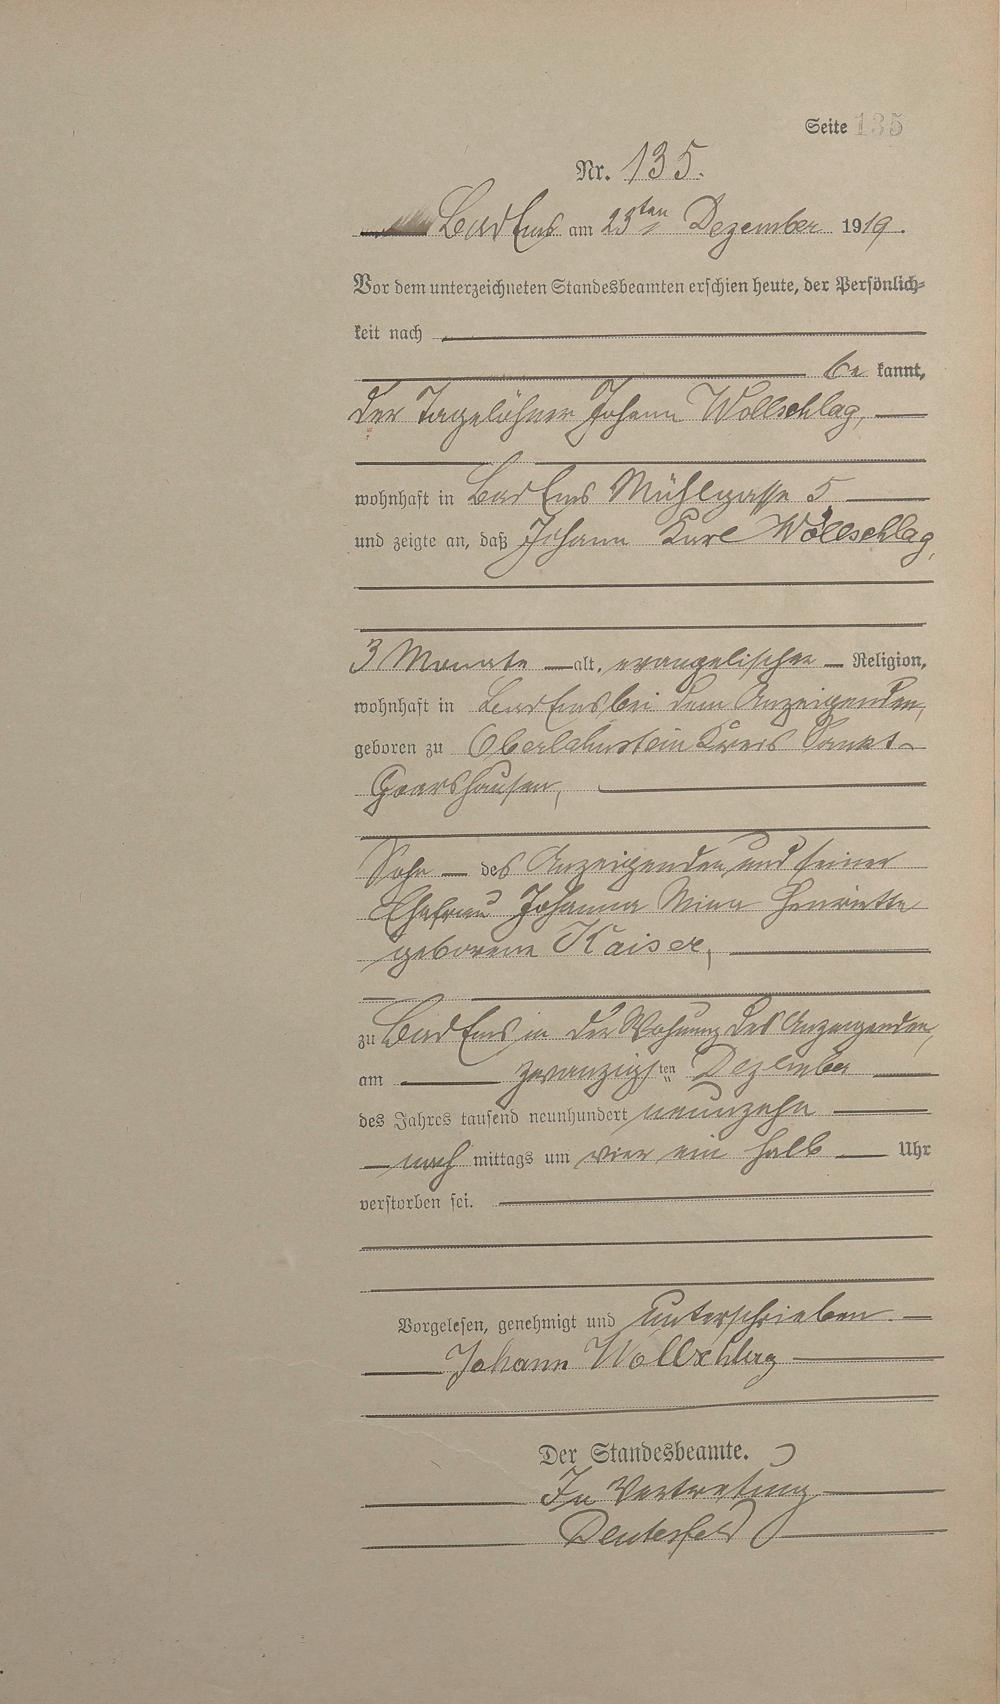 Seite 135
Nr. 135.
Bad Ems am 23ten Dezember 1919.
Vor dem unterzeichneten Standesbeamten erschien heute, der Persönlich-
keit nach
be kannt,
der Tagelöhner Johann Wollschlag,
wohnhaft in Bad Ems Mühlgasse 5
und zeigte an, daß Johann Karl Wollschlag,
3 Monate alt, evangelischer Religion,
wohnhaft in Bad Ems bei dem Anzeigenden,
geboren zu Oberlahnstein Kreis Sankt-
Goarshausen,
Sohn des Anzeigenden und seiner
Ehefrau Johanna Mina Henriette
geborene Kaiser,
zu Bad Ems in der Wohnung des Anzeigenden,
am zwanzigsten Dezember
des Jahres tausend neunhundert neunzehn
nach mittags um vier ein halb Uhr
verstorben sei.
Vorgelesen, genehmigt und unterschrieben.
Johann Wollschlag
Der Standesbeamte.
In Vertretung